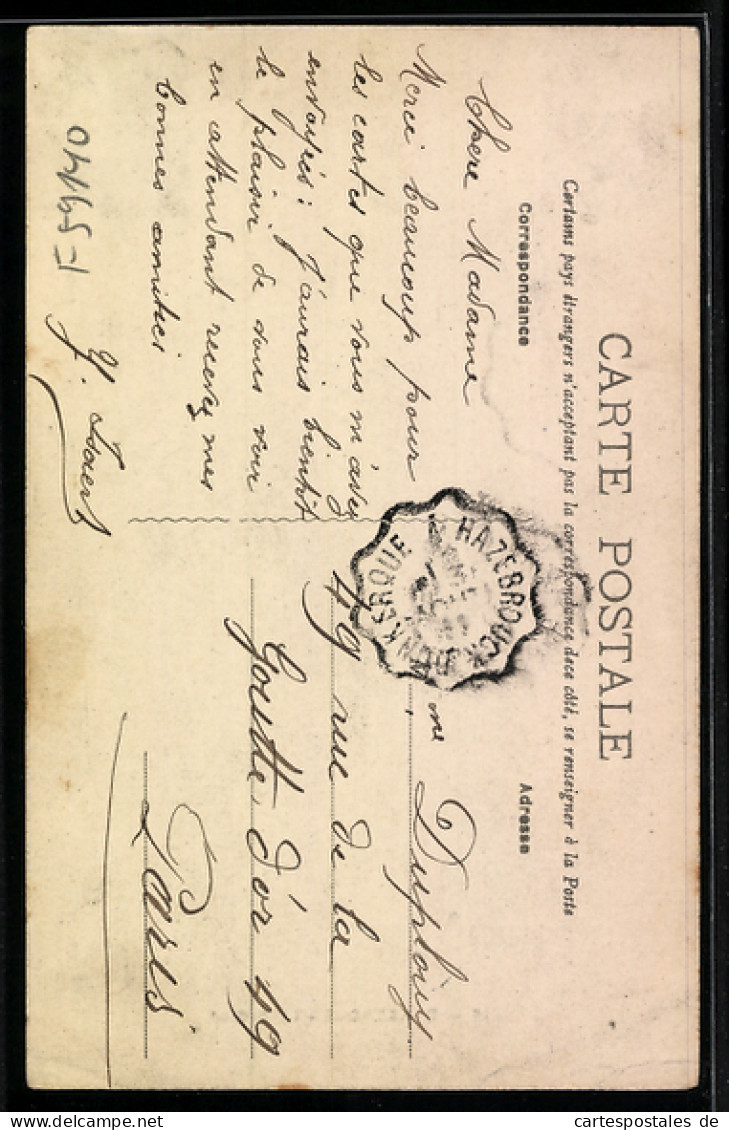 CARTE POSTALE
Certains pays étrangers n'acceptant pas la correspondance de ce côté, se renseigner à la Poste
Correspondance
Adresse
Chere Madame
Merci beaucoup pour
les cartes que vous m'avez
envoyés: J'aurais bientôt
le plaisir de vous voir
en attendant recevez mes
bonnes amities
Y.
HAZEBROUCK
DUNKERQUE A
me Duploüy
49 rue de la
Goutte d'or 49
Paris
cartespostales de
cartespostales.de